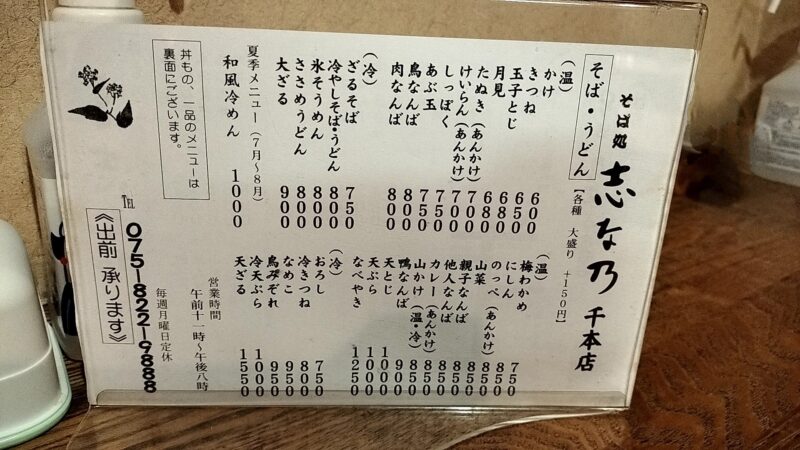 そば処 志な乃 千本店
そば・うどん
【各種 大盛り +150円】
(温)
かけ 600
きつね 650
玉子とじ 680
月見 680
たぬき(あんかけ) 700
けいらん(あんかけ) 700
しっぽく 750
あぶ玉 750
鳥なんば 800
肉なんば 800
(冷)
ざるそば 750
冷やしそば・うどん 800
氷そうめん 800
ささめうどん 800
大ざる 900
夏季メニュー(7月〜8月)
和風冷めん 1000
(温)
梅わかめ 750
にしん 850
のっぺ(あんかけ) 850
山菜 850
親子なんば 850
他人なんば 850
カレー(あんかけ) 850
山かけ(温・冷) 850
鴨なんば 900
天とじ 1000
天ぷら 1000
なべやき 1250
(冷)
おろし 750
冷きつね 800
なめこ 950
鳥みぞれ 950
冷天ぷら 1000
天ざる 1550
丼もの、一品のメニューは
裏面にございます。
営業時間
午前十一時〜午後八時
毎週月曜日定休
TEL 075-822-9888
《出前 承ります》